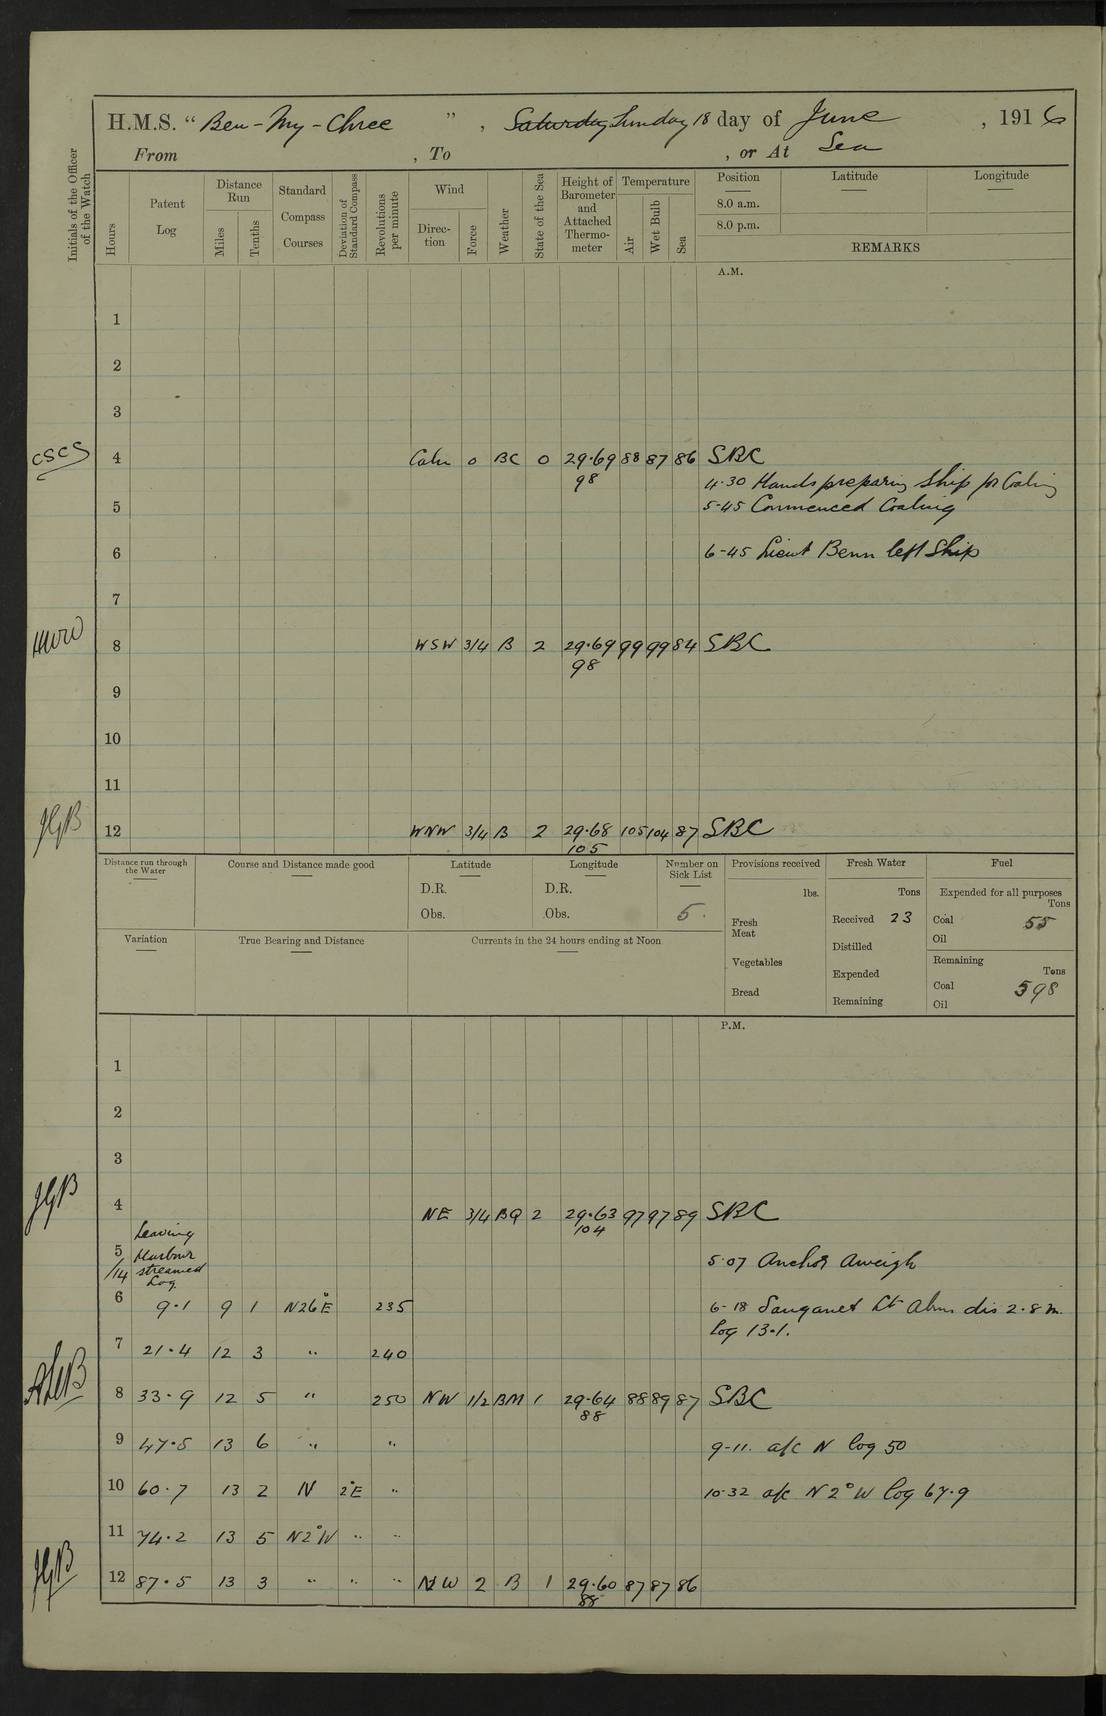 H.M.S. “ Ben-My-Chree ” , Saturday Sunday 18 day of June , 1916
From , To , or At Sea
Initials of the Officer of the Watch
Hours
Patent Log
Distance Run
Miles
Tenths
Standard Compass Courses
Deviation of Standard Compass
Revolutions per minute
Wind
Direc-tion
Force
Weather
State of the Sea
Height of Barometer and Attached Thermo-meter
Temperature
Air
Wet Bulb
Sea
Position
8.0 a.m.
8.0 p.m.
Latitude
Longitude
REMARKS
A.M.
1
2
3
CSCS 4 Calm 0 BC 0 29.69 88 87 86 SBC
98
4.30 Hands preparing Ship for Coaling
5 5-45 Commenced Coaling
6 6-45 Lieut Benn left Ship
7
8 WSW 3/4 B 2 29.69 99 99 84 SBC
98
9
10
11
JGB 12 WNW 3/4 B 2 29.68 105 104 87 SBC
105
Distance run through the Water
Course and Distance made good
Latitude
D.R.
Obs.
Longitude
D.R.
Obs.
Number on Sick List
5.
Provisions received
lbs.
Fresh Meat
Vegetables
Bread
Fresh Water
Tons
Received 23
Distilled
Expended
Remaining
Fuel
Expended for all purposes
Tons
Coal 55
Oil
Remaining
Tons
Coal 598
Oil
Variation
True Bearing and Distance
Currents in the 24 hours ending at Noon
P.M.
1
2
3
JGB 4 NE 3/4 BQ 2 29.63 97 97 89 SBC
104
Leaving
5 Harbour 5.07 Anchor Aweigh
/14 streamed
Log
6 9.1 9 1 N26°E 235 6-18 Sanganeb Lt Abm dis 2.8 m.
log 13.1.
7 21.4 12 3 " 240
8 33.9 12 5 " 250 NW 1/2 BM 1 29.64 88 89 87 SBC
88
9 47.5 13 6 " " 9-11. a/c N log 50
10 60.7 13 2 N 2°E " 10-32 a/c N2°W log 67.9
11 74.2 13 5 N2°W " "
JGB 12 87.5 13 3 " " " NW 2 B 1 29.60 87 87 86
88